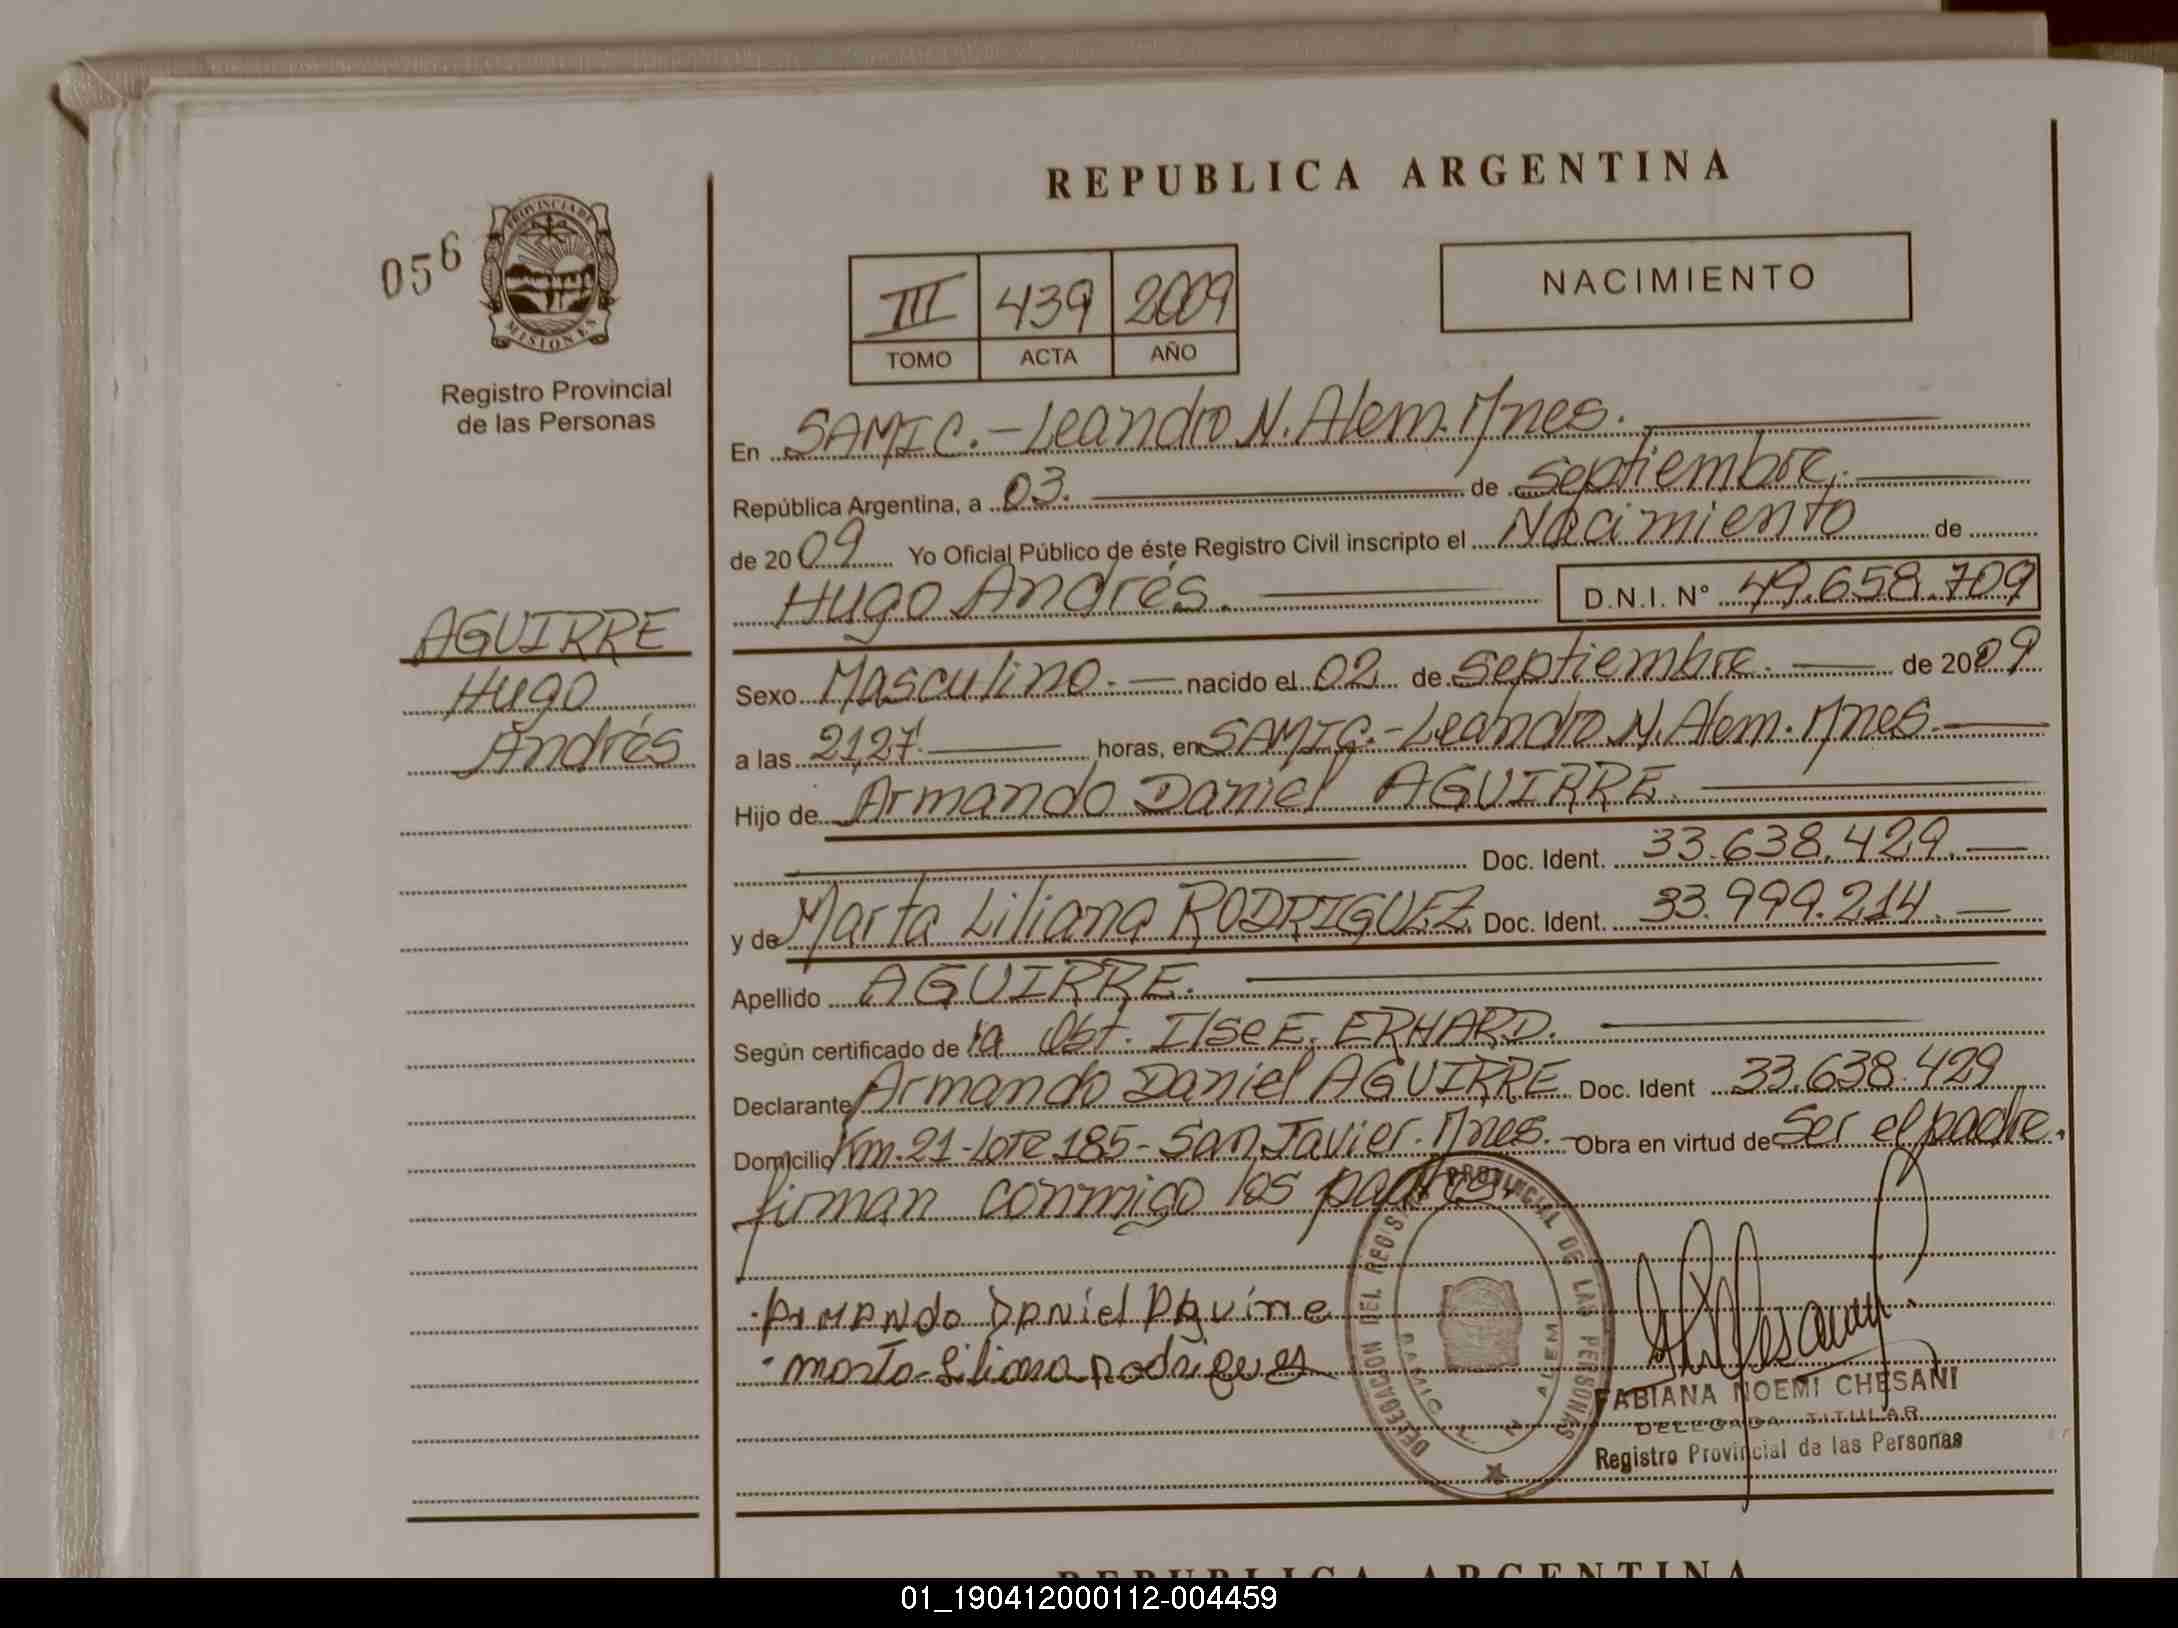 REPUBLICA ARGENTINA
056
PROVINCIA DE
MISIONES
Registro Provincial
de las Personas
III 439 2009
TOMO ACTA AÑO
NACIMIENTO
En SAMIC.- Leandro N. Alem. Mnes.
República Argentina, a 03. de septiembre,
de 2009 Yo Oficial Público de éste Registro Civil inscripto el Nacimiento de
Hugo Andrés. D.N.I. N° 49.658.709
AGUIRRE
Hugo
Andrés
Sexo Masculino.- nacido el 02 de septiembre.- de 2009
a las 21,27 horas, en SAMIC.- Leandro N. Alem. Mnes.
Hijo de Armando Daniel AGUIRRE.
Doc. Ident. 33.638.429.
y de Marta Liliana RODRIGUEZ. Doc. Ident. 33.999.214.
Apellido AGUIRRE.
Según certificado de la Obt. Ilse E. ERHARD.
Declarante Armando Daniel AGUIRRE Doc. Ident 33.638.429
Domicilio Km.21-Lote 185-San Javier. Mnes. Obra en virtud de Ser el padre.
firman conmigo los padres.
Armando Daniel Aguirre
marta Liliana Rodrigues
DELEGACION DEL REGISTRO PROVINCIAL DE LAS PERSONAS
SAMIC L N ALEM
FABIANA NOEMI CHESANI
DELEGADA TITULAR
Registro Provincial de las Personas
REPUBLICA ARGENTINA
01_190412000112-004459